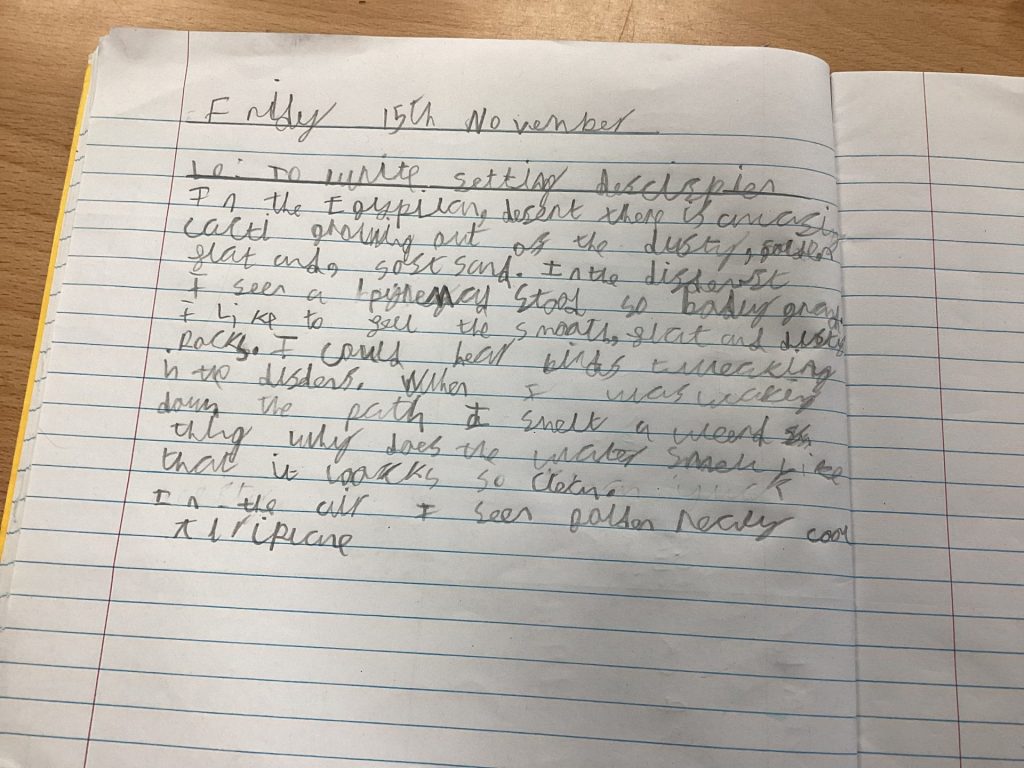 Friday 15th November
Lo: To write setting descispion
In the Egyption, desert there is amasing
cacti growing out of the dusty, golden
flat and, soft sand. In the disdenst
I seen a pyremad stood so badly grand
I Like to feel the smooth, flat and dusty
Rocks. I could hear birds tweaking
in the disdens. When I was walking
down the path I smelt a weerd
thing why does the water smell like
that it loocks so clean.
In the air I seen golden Reacly cool
Airiplane